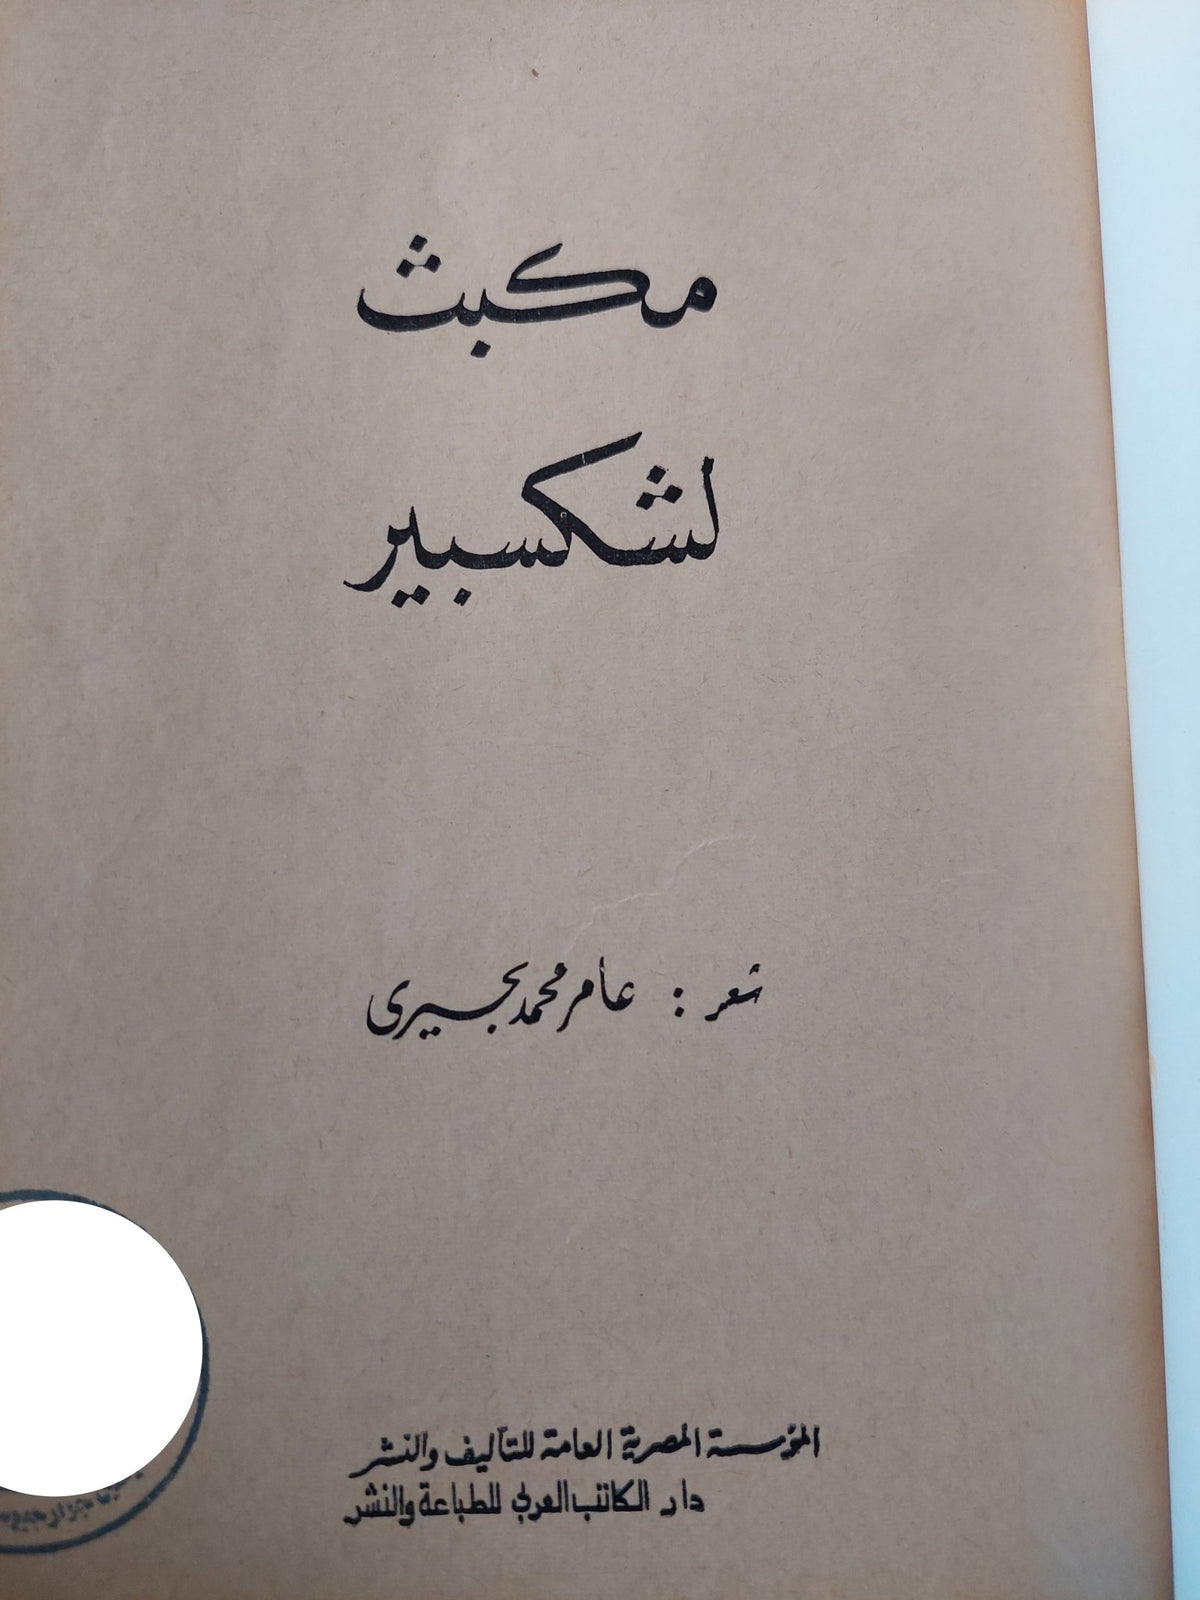 مكبث
لشكسبير
شعر : عامر محمد بحيرى
المؤسسة المصرية العامة للتأليف والنشر
دار الكاتب العربى للطباعة والنشر